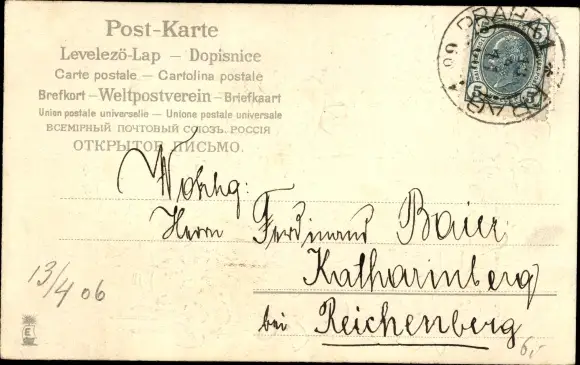 Post-Karte
Levelező-Lap — Dopisnice
Carte postale — Cartolina postale
Brefkort — Weltpostverein — Briefkaart
Union postale universelle — Unione postale universale
ВСЕМІРНЫЙ ПОЧТОВЫЙ СОЮЗЪ. РОССІЯ
ОТКРЫТОЕ ПИСЬМО.
PRAHA 1
PRAG 1
5 5
Herrn Ferdinand Baier
Katharinberg
bei Reichenberg
13/4 06
E
6,-